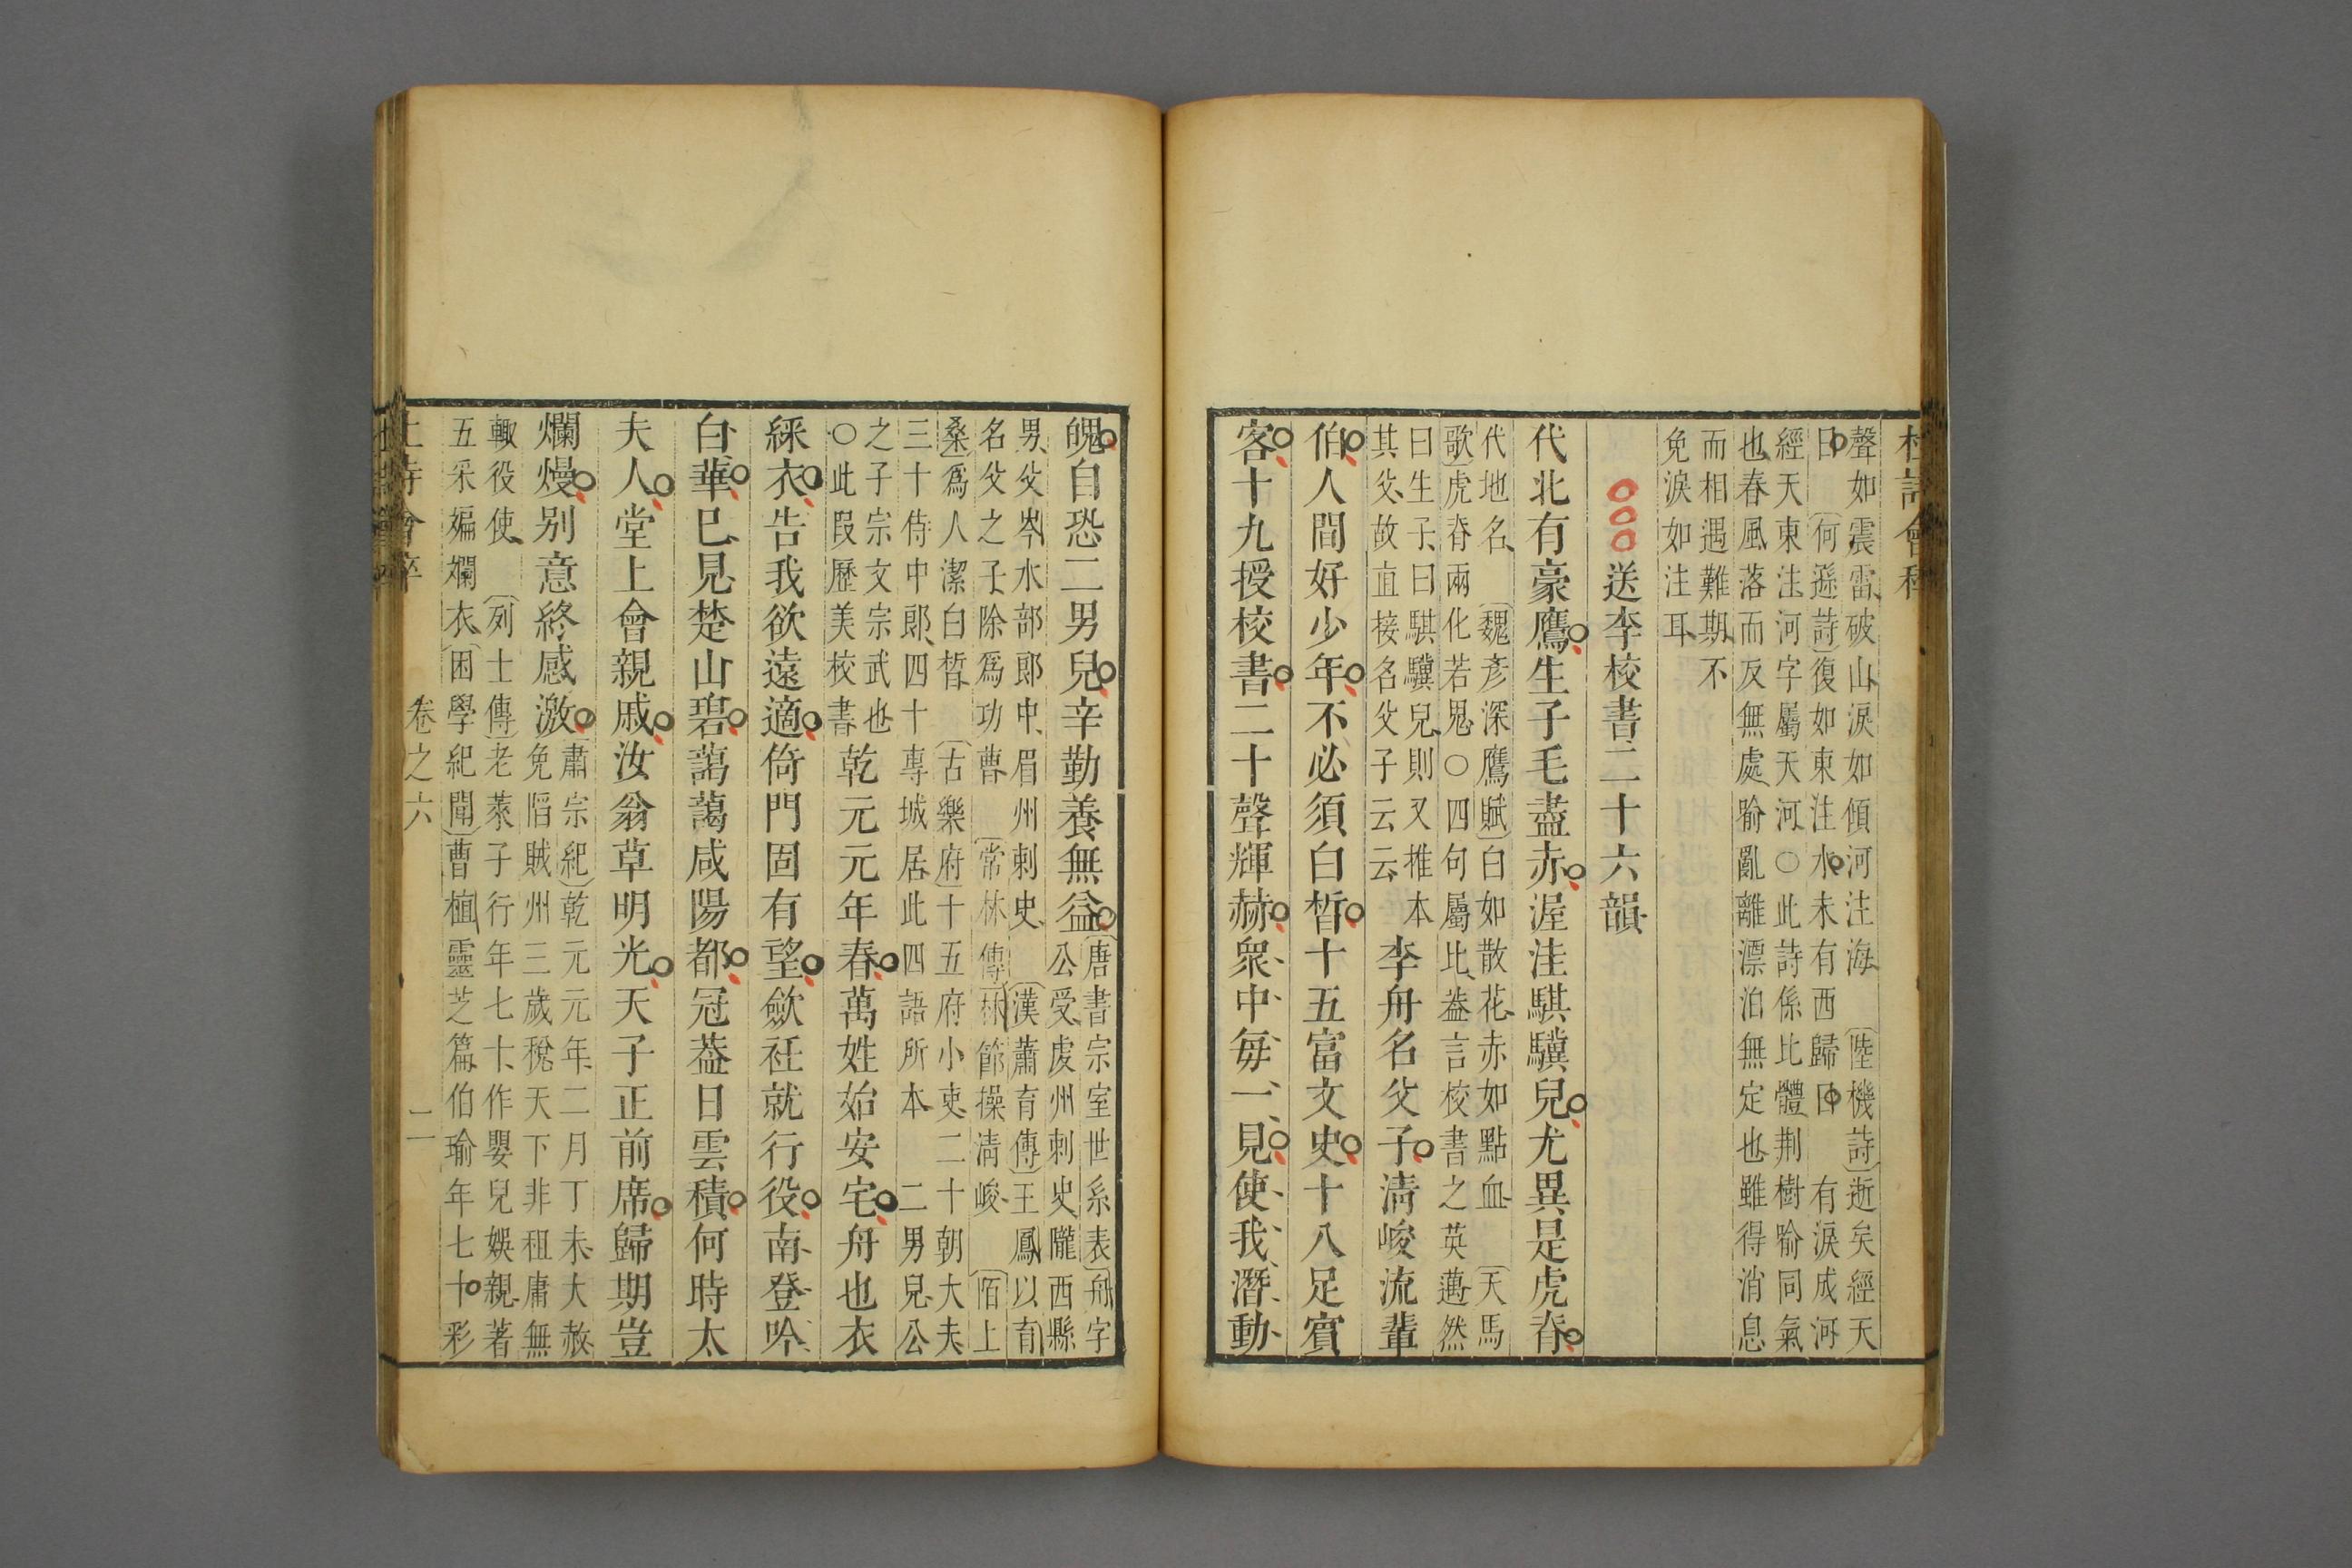 杜詩會稡
聲如震雷破山淚如傾河注海〔陸機詩〕逝矣經天
日〔何遜詩〕復如東注水未有西歸日有淚成河
經天東注河字屬天河○此詩係比體荆樹喻同氣
也春風落而反無處喻亂離漂泊無定也雖得消息
而相遇難期不
免淚如注耳
送李校書二十六韻
代北有豪鷹生子毛盡赤渥洼騏驥兒尤異是虎脊
代地名〔魏彥深鷹賦〕白如散花赤如點血〔天馬
歌〕虎脊兩化若鬼○四句屬比葢言校書之英邁然
曰生子曰騏驥兒則又推本
其父故直接名父子云云
李舟名父子淸峻流輩
伯人間好少年不必須白晳十五富文史十八足賓
客十九授校書二十聲輝赫衆中每一見使我潛動
魄自恐二男兒辛勤養無益
〔唐書宗室世系表〕舟字
公受虔州刺史隴西縣
男父岑水部郞中眉州刺史〔漢蕭育傳〕王鳳以育
名父之子除爲功曹〔常林傳〕林節操淸峻〔陌上
桑〕爲人潔白晳〔古樂府〕十五府小吏二十朝大夫
三十侍中郞四十專城居此四語所本二男兒公
之子宗文宗武也
○此段歷美校書
乾元元年春萬姓始安宅舟也衣
綵衣告我欲遠適倚門固有望斂衽就行役南登吟
白華已見楚山碧藹藹咸陽都冠葢日雲積何時太
夫人堂上會親戚汝翁草明光天子正前席歸期豈
爛熳别意終感激
〔肅宗紀〕乾元元年二月丁未大赦
免陷賊州三歲稅天下非租庸無
輙役使〔列士傳〕老萊子行年七十作嬰兒娛親著
五采斒斕衣〔困學紀聞〕曹植靈芝篇伯瑜年七十彩
杜詩會稡
卷之六
二